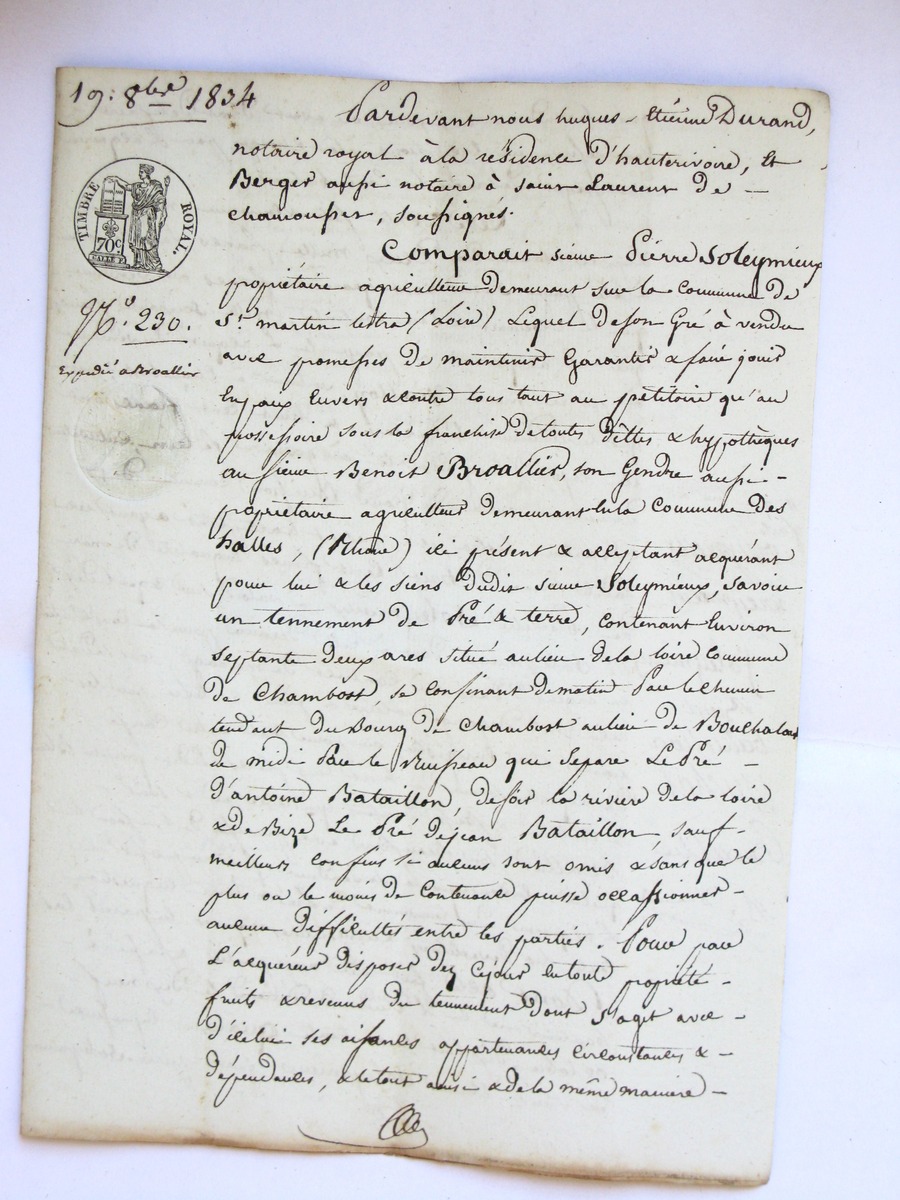 19: 8bre 1834
Pardevant nous hugues - Etienne Durand,
notaire royal à la résidence d'hauterivoire, Et
Berger aussi notaire à Saint Laurent de —
chamousset, soussignés.
TIMBRE ROYAL.
70c.
Comparait sieur Pierre Soleymieux
propriétaire agriculteur demeurant sur la Commune de
St. martin lestra (Loire) Lequel de son Gré à vendu
avec promesses de maintenir Garantir & faire jouir
En paix Envers & contre tous tant au pétitoire qu'au
possessoire sous la franchise de toutes dettes & hypothèques
au sieur Benoit Broallier, son Gendre aussi -
propriétaire agriculteur demeurant En la Commune des
halles, (Rhône) ici présent & acceptant acquérant
pour lui & les siens dudit sieur Soleymieux, savoir
un tennement de Pré & terre, contenant Environ
septante deux ares situé au lieu de la loire Commune
de Chambost, se confinant de matin Par le Chemin
tendant du Bourg de Chambost au lieu de
de midi Par le Ruisseau qui Separe Le Pré —
d'antoine Bataillon, de soir la rivière de la loire
& de Bize Le Pré de jean Bataillon, sauf -
meilleurs confins si aucuns sont omis & sans que le
plus ou le moins de Contenance puisse occassionner -
aucune difficultés entre les parties. Pour par
L'acquéreur disposer dez Cejour En toute propriété -
fruits & revenus du tennement dont s'agit avec -
d'icelui ses aisances appartenances circonstances & -
dépendances, & le tout ainsi & de la même manière -
No. 230.
Expédié a Broallier